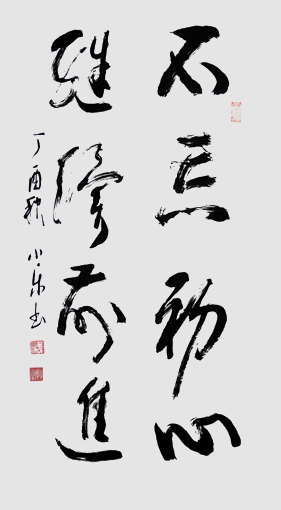 不忘初心
继续前進
丁酉秋小乐书